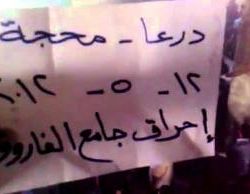 درعا - محجة
١٢ - ٥ - ٢٠١٢
إحراق جامع الفاروق